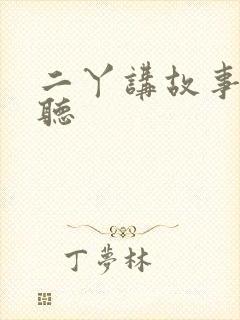 二丫講故事
聽
丁夢林